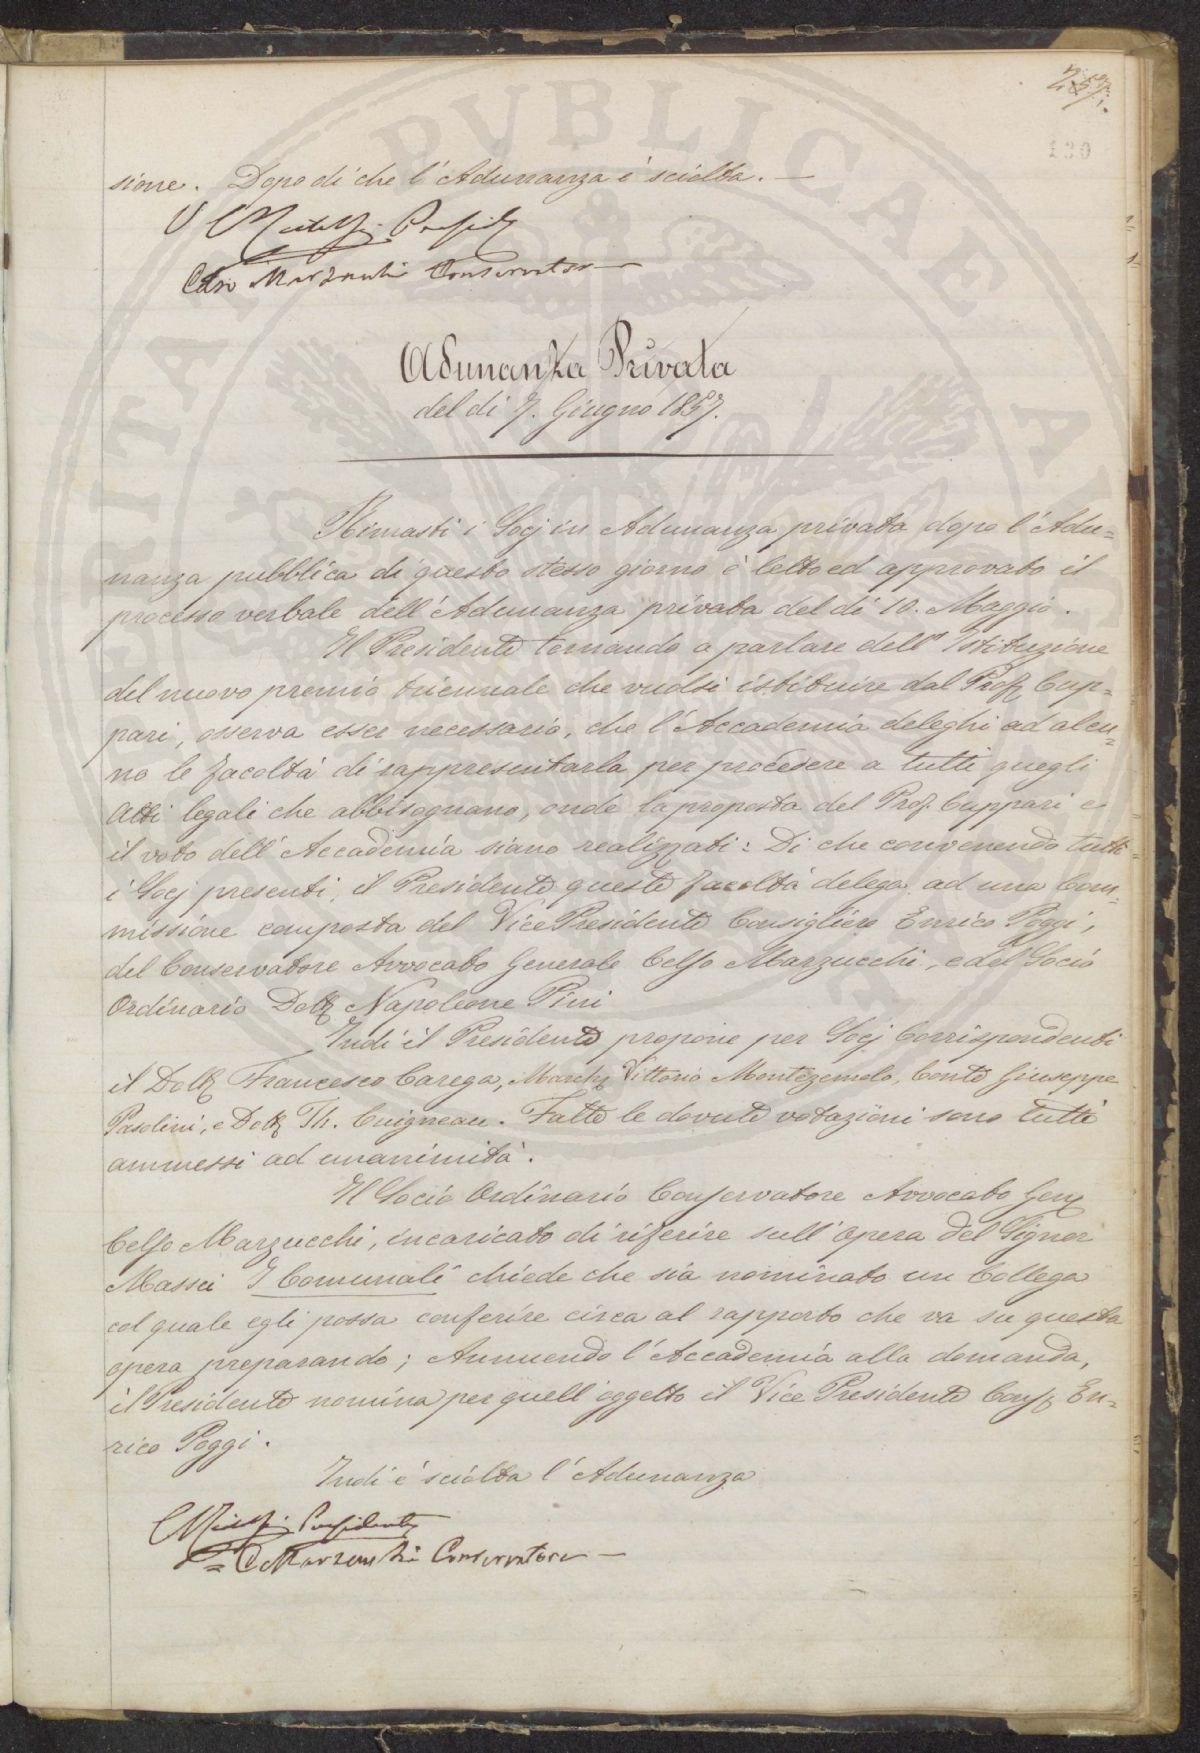 257.
130
sione. Dopo di che l'Adunanza è sciolta. —
Presid
Celso Marzucchi Conservatore —
Adunanza Privata
del di 7. Giugno 1857.
Rimasti i Socj in Adunanza privata dopo l'Adu=
nanza pubblica di questo stesso giorno è letto ed approvato il
processo verbale dell'Adunanza privata del di 10. Maggio.
Il Presidente tornando a parlare dell'Istituzione
del nuovo premio triennale che vuolsi istituire dal Prof. Cup=
pari, osserva esser necessario, che l'Accademia deleghi ad alcu=
no le facoltà di rappresentarla per procedere a tutti quegli
Atti legali che abbisognano, onde la proposta del Prof. Cuppari e
il voto dell'Accademia siano realizzati: Di che convenendo tutti
i Socj presenti, il Presidente queste facoltà delega ad una Com=
missione composta del Vice Presidente Consigliere Enrico Poggi,
del Conservatore Avvocato Generale Celso Marzucchi, e del Socio
Ordinario Dott. Napoleone Pini
Indi il Presidente propone per Socj Corrispondenti
il Dott. Francesco Carega, March. Vittorio Montezemolo, Conte Giuseppe
Pasolini, e Dott. Th. Cuigneau. Fatte le dovute votazioni sono tutti
ammessi ad unanimità.
Il Socio Ordinario Conservatore Avvocato Gen.
Celso Marzucchi, incaricato di riferire sull'opera del Signor
Massei I Comunali chiede che sia nominato un Collega
col quale egli possa conferire circa al rapporto che va su questa
opera preparando; Annuendo l'Accademia alla domanda,
il Presidente nomina per quell'oggetto il Vice Presidente Cons. En=
rico Poggi.
Indi è sciolta l'Adunanza
Presidente
C Marzucchi Conservatore —